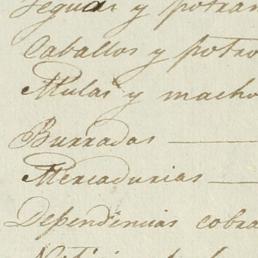 Yeguas y potran
Caballos y potro
Mulas y macho
Burradas
Mercadurias
Dependencias cobra